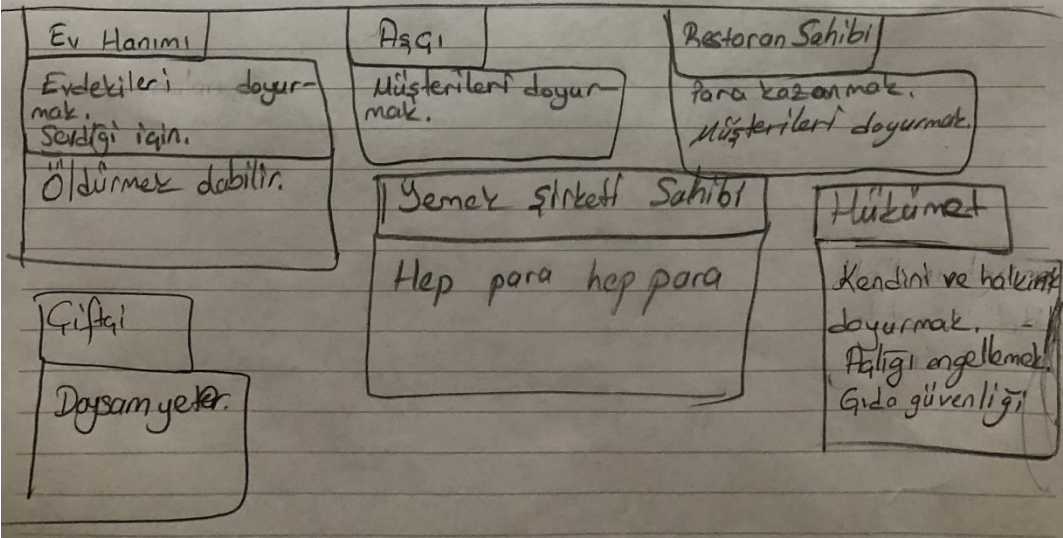 Ev Hanımı
Evdekileri doyur-
mak.
Sevdiği için.
Öldürmek dabilir.
Aşçı
Müşterileri doyur-
mak.
Restoran Sahibi
Para kazanmak.
Müşterileri doyurmak.
Yemek Şirketi Sahibi
Hep para hep para
Hükümet
Kendini ve halkını
doyurmak.
Açlığı engellemek.
Gıda güvenliği
Çiftçi
Doysam yeter.